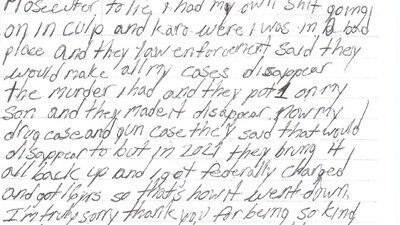 Prosecuter to lie, i had my own shit going
on in Culp and Karo were i was in a bad
place and they law enforcement said they
would make all my cases disappear
the murder i had and they put 1 on my
son and they made it disappear. Now my
drug case and gun case they said that would
disappear to but in 2021 they brung it
all back up and i got federally charged
and got yrs so that's how it went down.
I'm truly sorry thank you for being so kind